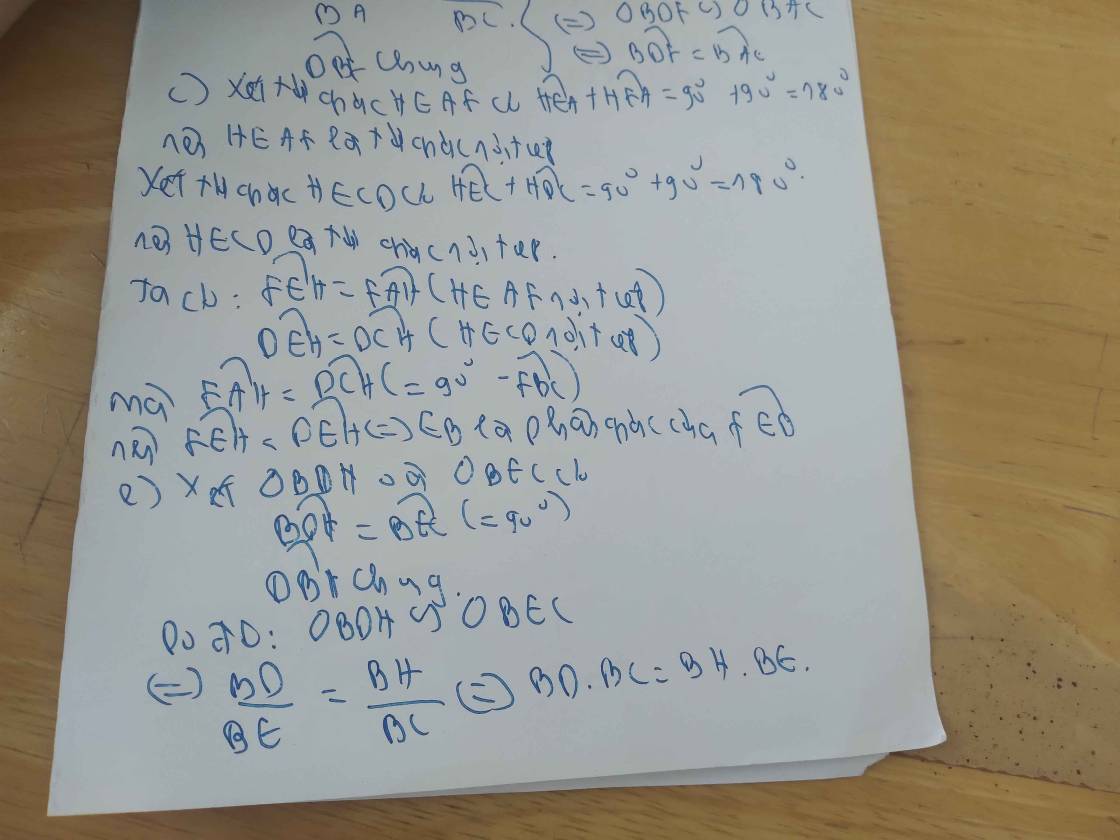 BA BC. (=) ΔBDF ∽ ΔBAC
DBF chung (=) BDF = BAC
c) Xét tứ giác HEAF có HEA + HFA = 90° + 90° = 180°
nên HEAF là tứ giác nội tiếp
Xét tứ giác HECD có HEC + HDC = 90° + 90° = 180°.
nên HECD là tứ giác nội tiếp.
Ta có: FEH = FAH (HEAF nội tiếp)
DEH = DCH (HECD nội tiếp)
mà FAH = DCH (= 90° - FBC)
nên FEH = DEH (=) EB là phân giác của FED
e) Xét ΔBDH và ΔBEC có
BDH = BEC (= 90°)
DBH chung.
Do đó: ΔBDH ∽ ΔBEC
(=) BD/BE = BH/BC (=) BD.BC = BH.BE.